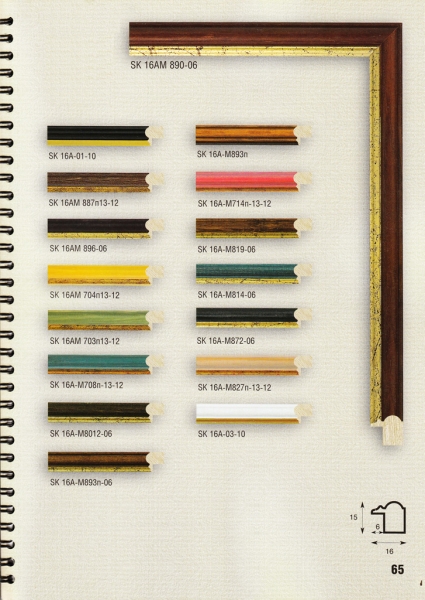 SK 16AM 890-06
SK 16A-01-10
SK 16A-M893n
SK 16AM 887n13-12
SK 16A-M714n-13-12
SK 16AM 896-06
SK 16A-M819-06
SK 16AM 704n13-12
SK 16A-M814-06
SK 16AM 703n13-12
SK 16A-M872-06
SK 16A-M708n-13-12
SK 16A-M827n-13-12
SK 16A-M8012-06
SK 16A-03-10
SK 16A-M893n-06
15
6
16
65